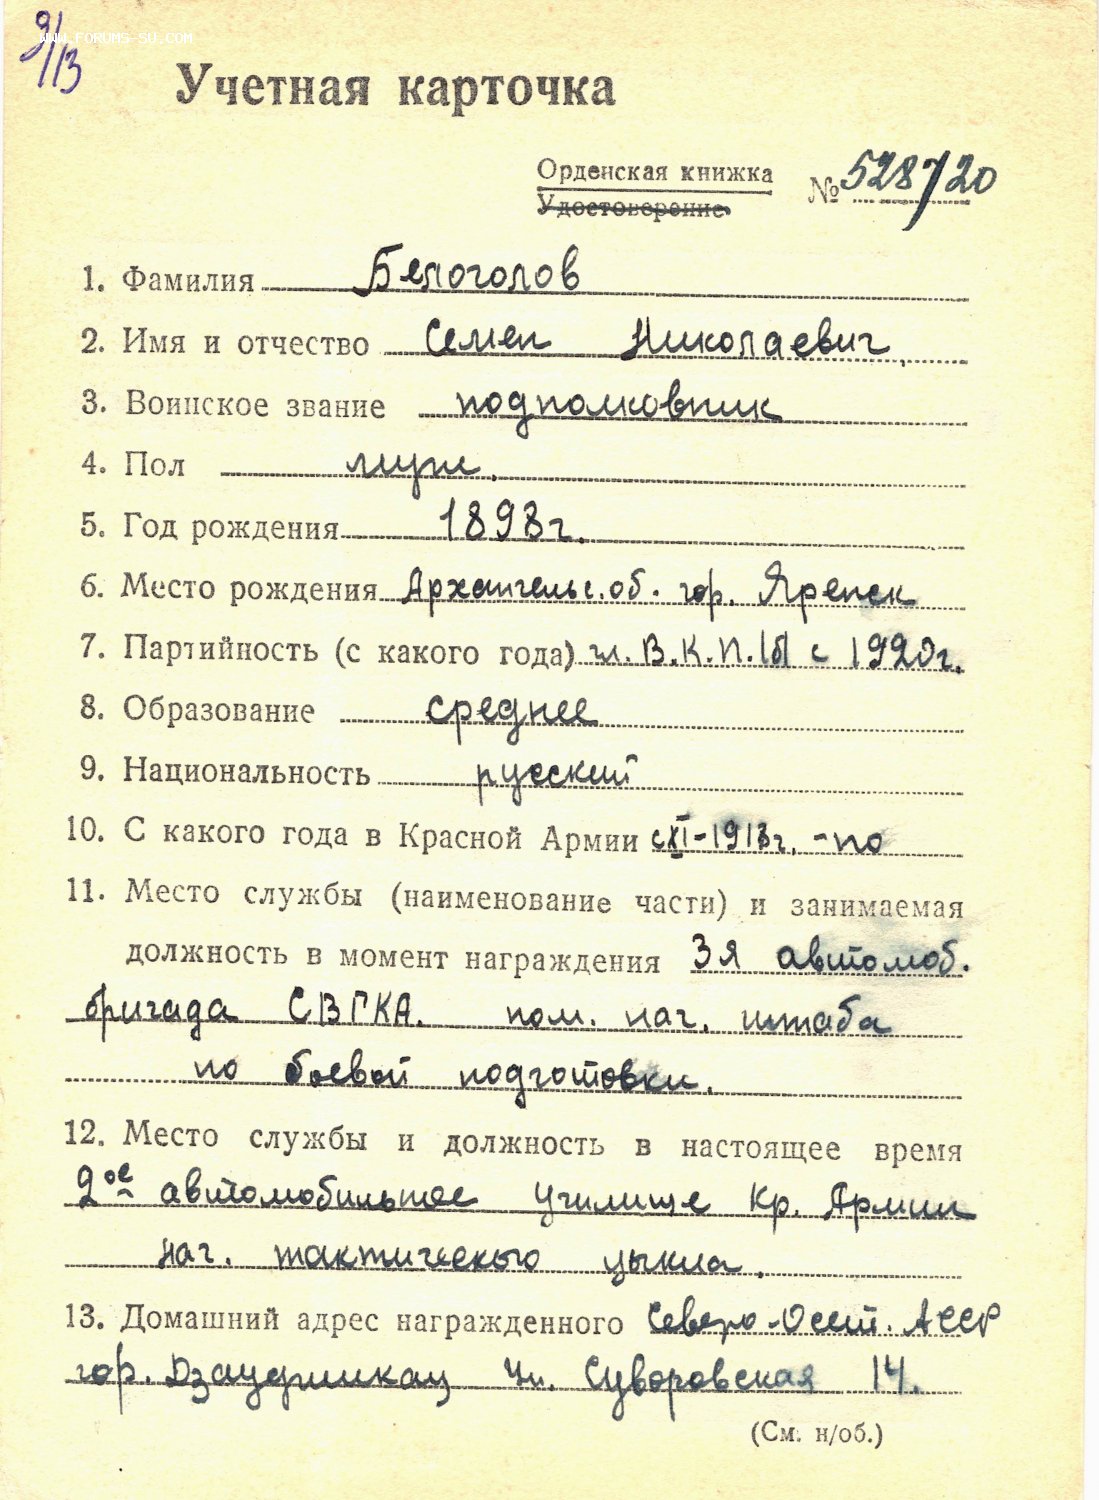 9/13
WWW.FORUMS-SU.COM
Учетная карточка
Орденская книжка
Удостоверение
№ 528720
1. Фамилия Белоголов
2. Имя и отчество Семен Николаевич
3. Воинское звание подполковник
4. Пол муж.
5. Год рождения 1893г.
6. Место рождения Архангельс. об. гор. Яренск
7. Партийность (с какого года) чл. В.К.П.(б) с 1920г.
8. Образование среднее
9. Национальность русский
10. С какого года в Красной Армии с XI-1913г. - по
11. Место службы (наименование части) и занимаемая
должность в момент награждения 3я автомоб.
бригада СВГКА. пом. нач. штаба
по боевой подготовки.
12. Место службы и должность в настоящее время
2ое автомобильное училище Кр. Армии
нач. тактического цыкла.
13. Домашний адрес награжденного Северо-Осет. АССР
гор. Дзауджикау Ул. Суворовская 14.
(См. н/об.)